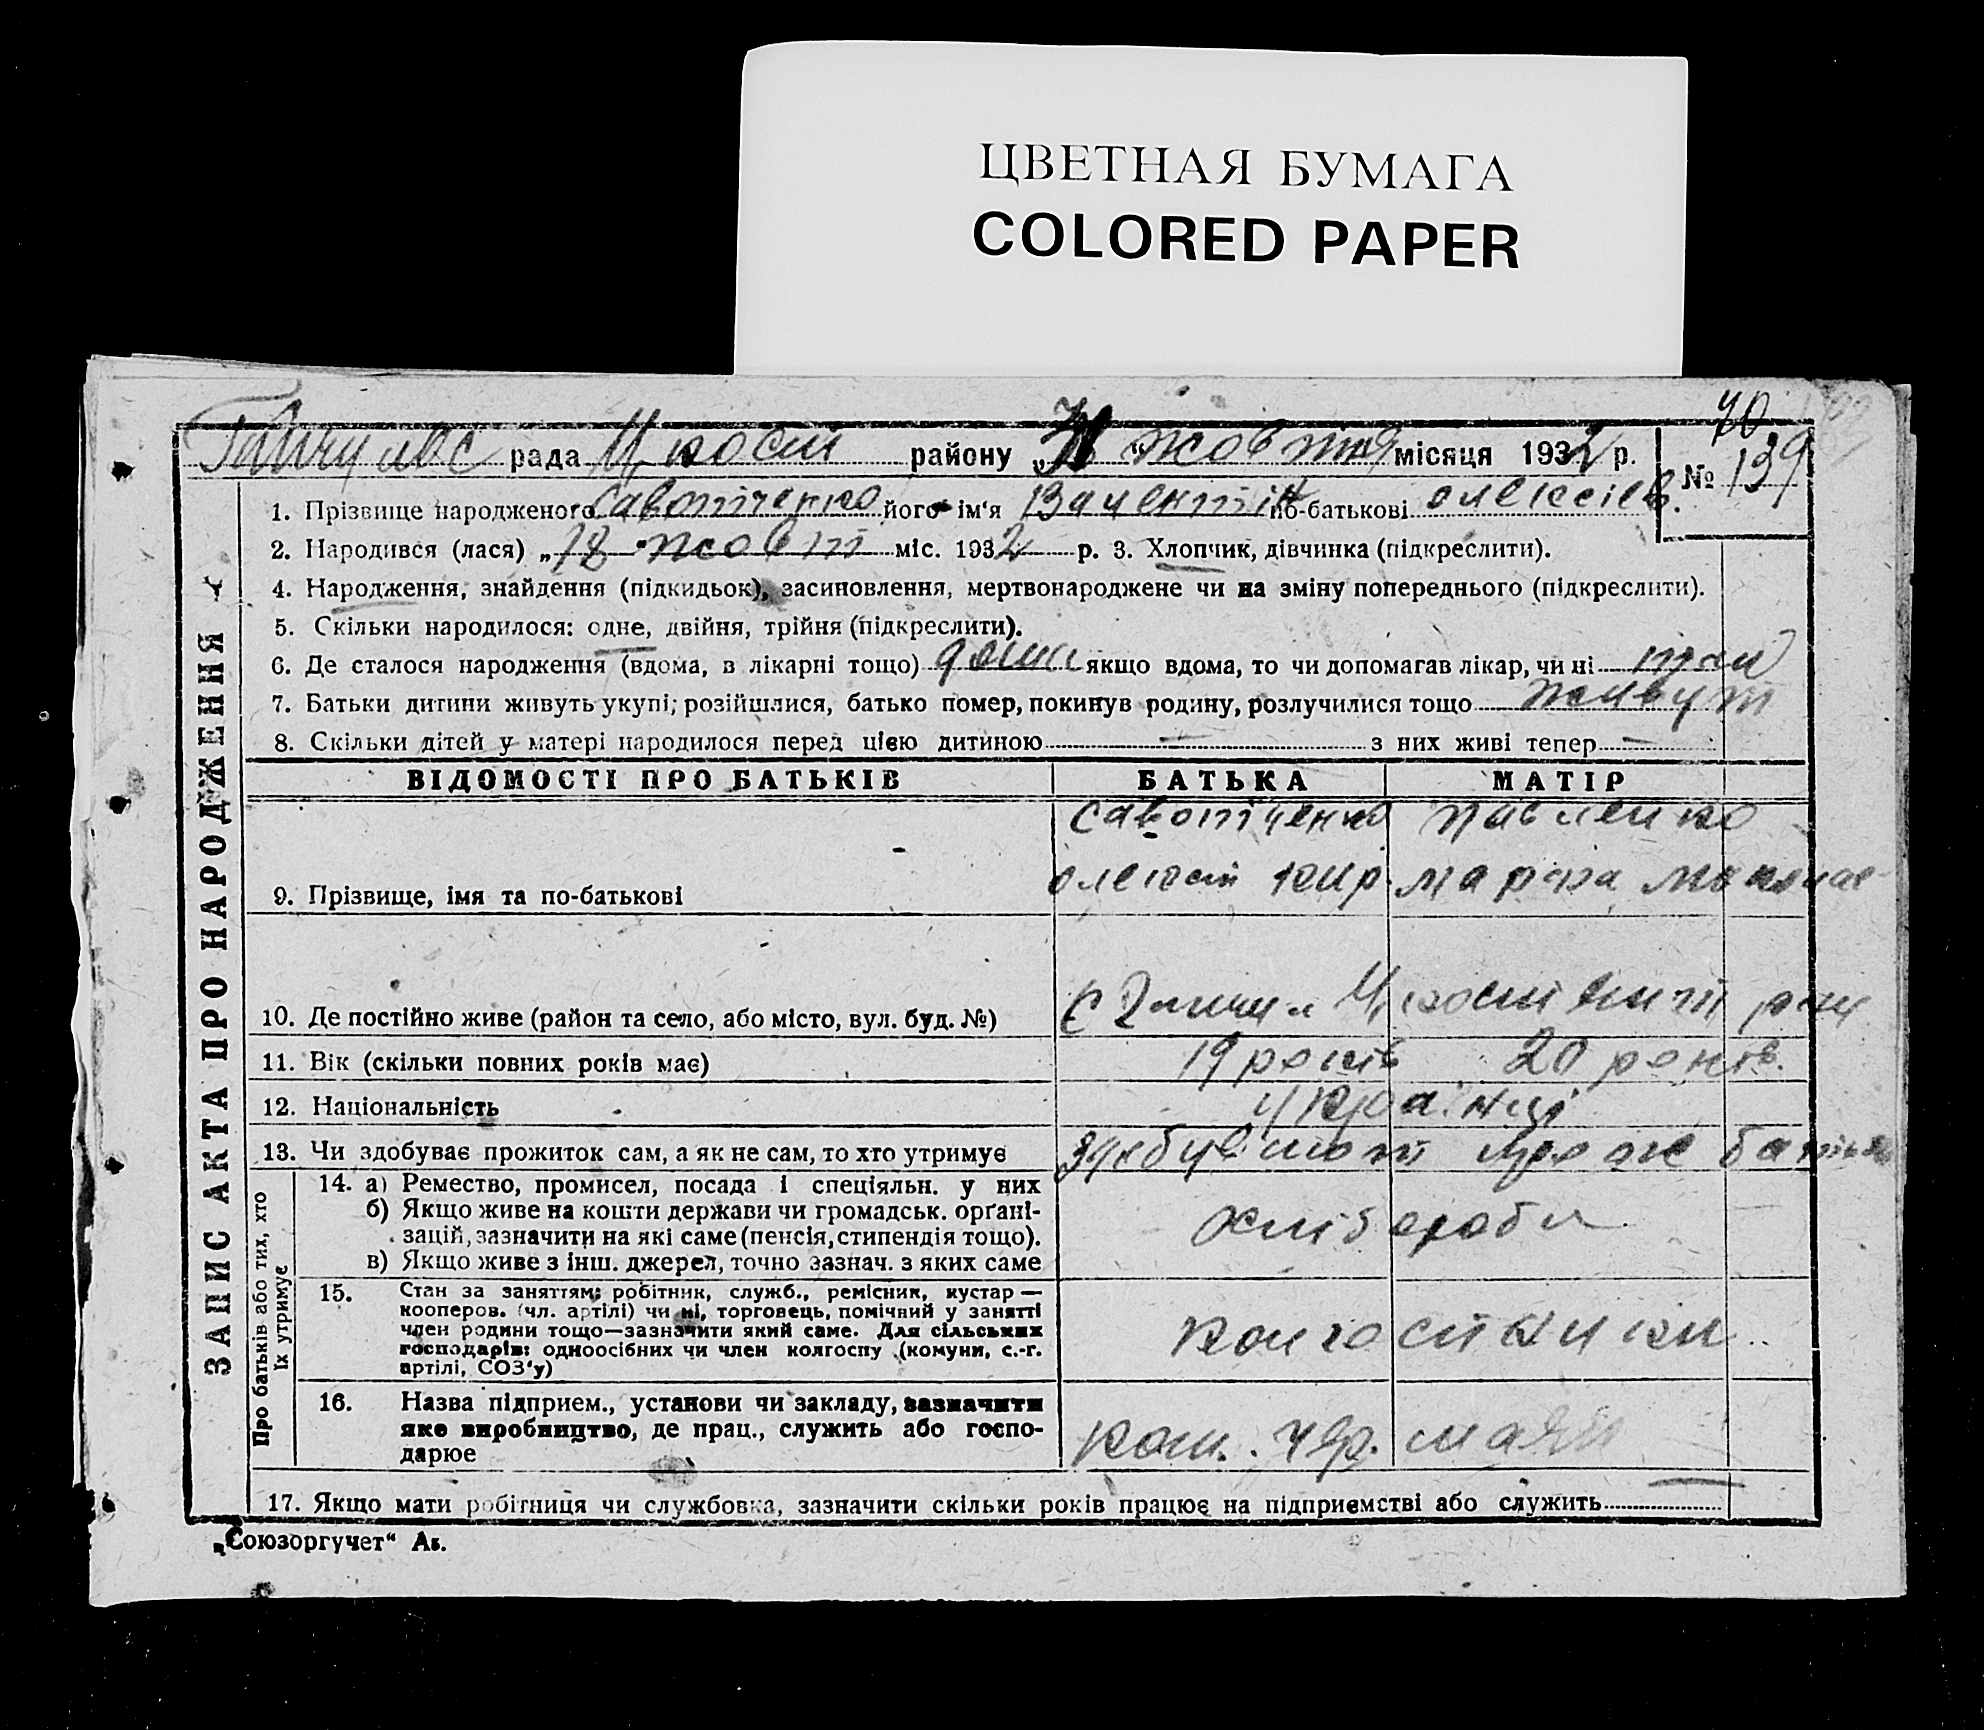 ЦВЕТНАЯ БУМАГА
COLORED PAPER
70
рада районु „ “ жовтня місяця 1932 р. № 139
ЗАПИС АКТА ПРО НАРОДЖЕННЯ
1. Прізвище народженого Савотченко його ім‘я Валентін по-батькові олексіев.
2. Народився (лася) „18 “ жовт міс. 1932 р. 3. Хлопчик, дівчинка (підкреслити).
4. Народження, знайдення (підкидьок), засиновлення, мертвонароджене чи на зміну попереднього (підкреслити).
5. Скільки народилося: одне, двійня, трійня (підкреслити).
6. Де сталося народження (вдома, в лікарні тощо) дома якщо вдома, то чи допомагав лікар, чи ні
7. Батьки дитини живуть укупі; розійшлися, батько помер, покинув родину, розлучилися тощо живут
8. Скільки дітей у матері народилося перед цією дитиною — з них живі тепер —
ВІДОМОСТІ ПРО БАТЬКІВ БАТЬКА МАТІР
Савотченко Павленко
9. Прізвище, імя та по-батькові олексій кир. марфа
10. Де постійно живе (район та село, або місто, вул. буд. №)
11. Вік (скільки повних років має) 19 років 20 років.
12. Національність українці
13. Чи здобуває прожиток сам, а як не сам, то хто утримує
Про батьків або тих, хто їх утримує
14. а) Ремество, промисел, посада і спеціяльн. у них
б) Якщо живе на кошти держави чи громадськ. орґані-
зацій, зазначити на які саме (пенсія, стипендія тощо).
в) Якщо живе з інш. джерел, точно зазнач. з яких саме
хлібороби
15. Стан за заняттям: робітник, служб., ремісник, кустар —
кооперов. (чл. артілі) чи ні, торговець, помічний у занятті
член родини тощо—зазначити який саме. Для сільських
господарів: одноосібних чи член колгоспу (комуни, с.-г.
артілі, СОЗ‘у)
колгоспники
16. Назва підприєм., установи чи закладу, зазначити
яке виробництво, де прац., служить або госпо-
дарює
чер. маяк
17. Якщо мати робітниця чи службовка, зазначити скільки років працює на підприємстві або служить —
„Союзоргучет“